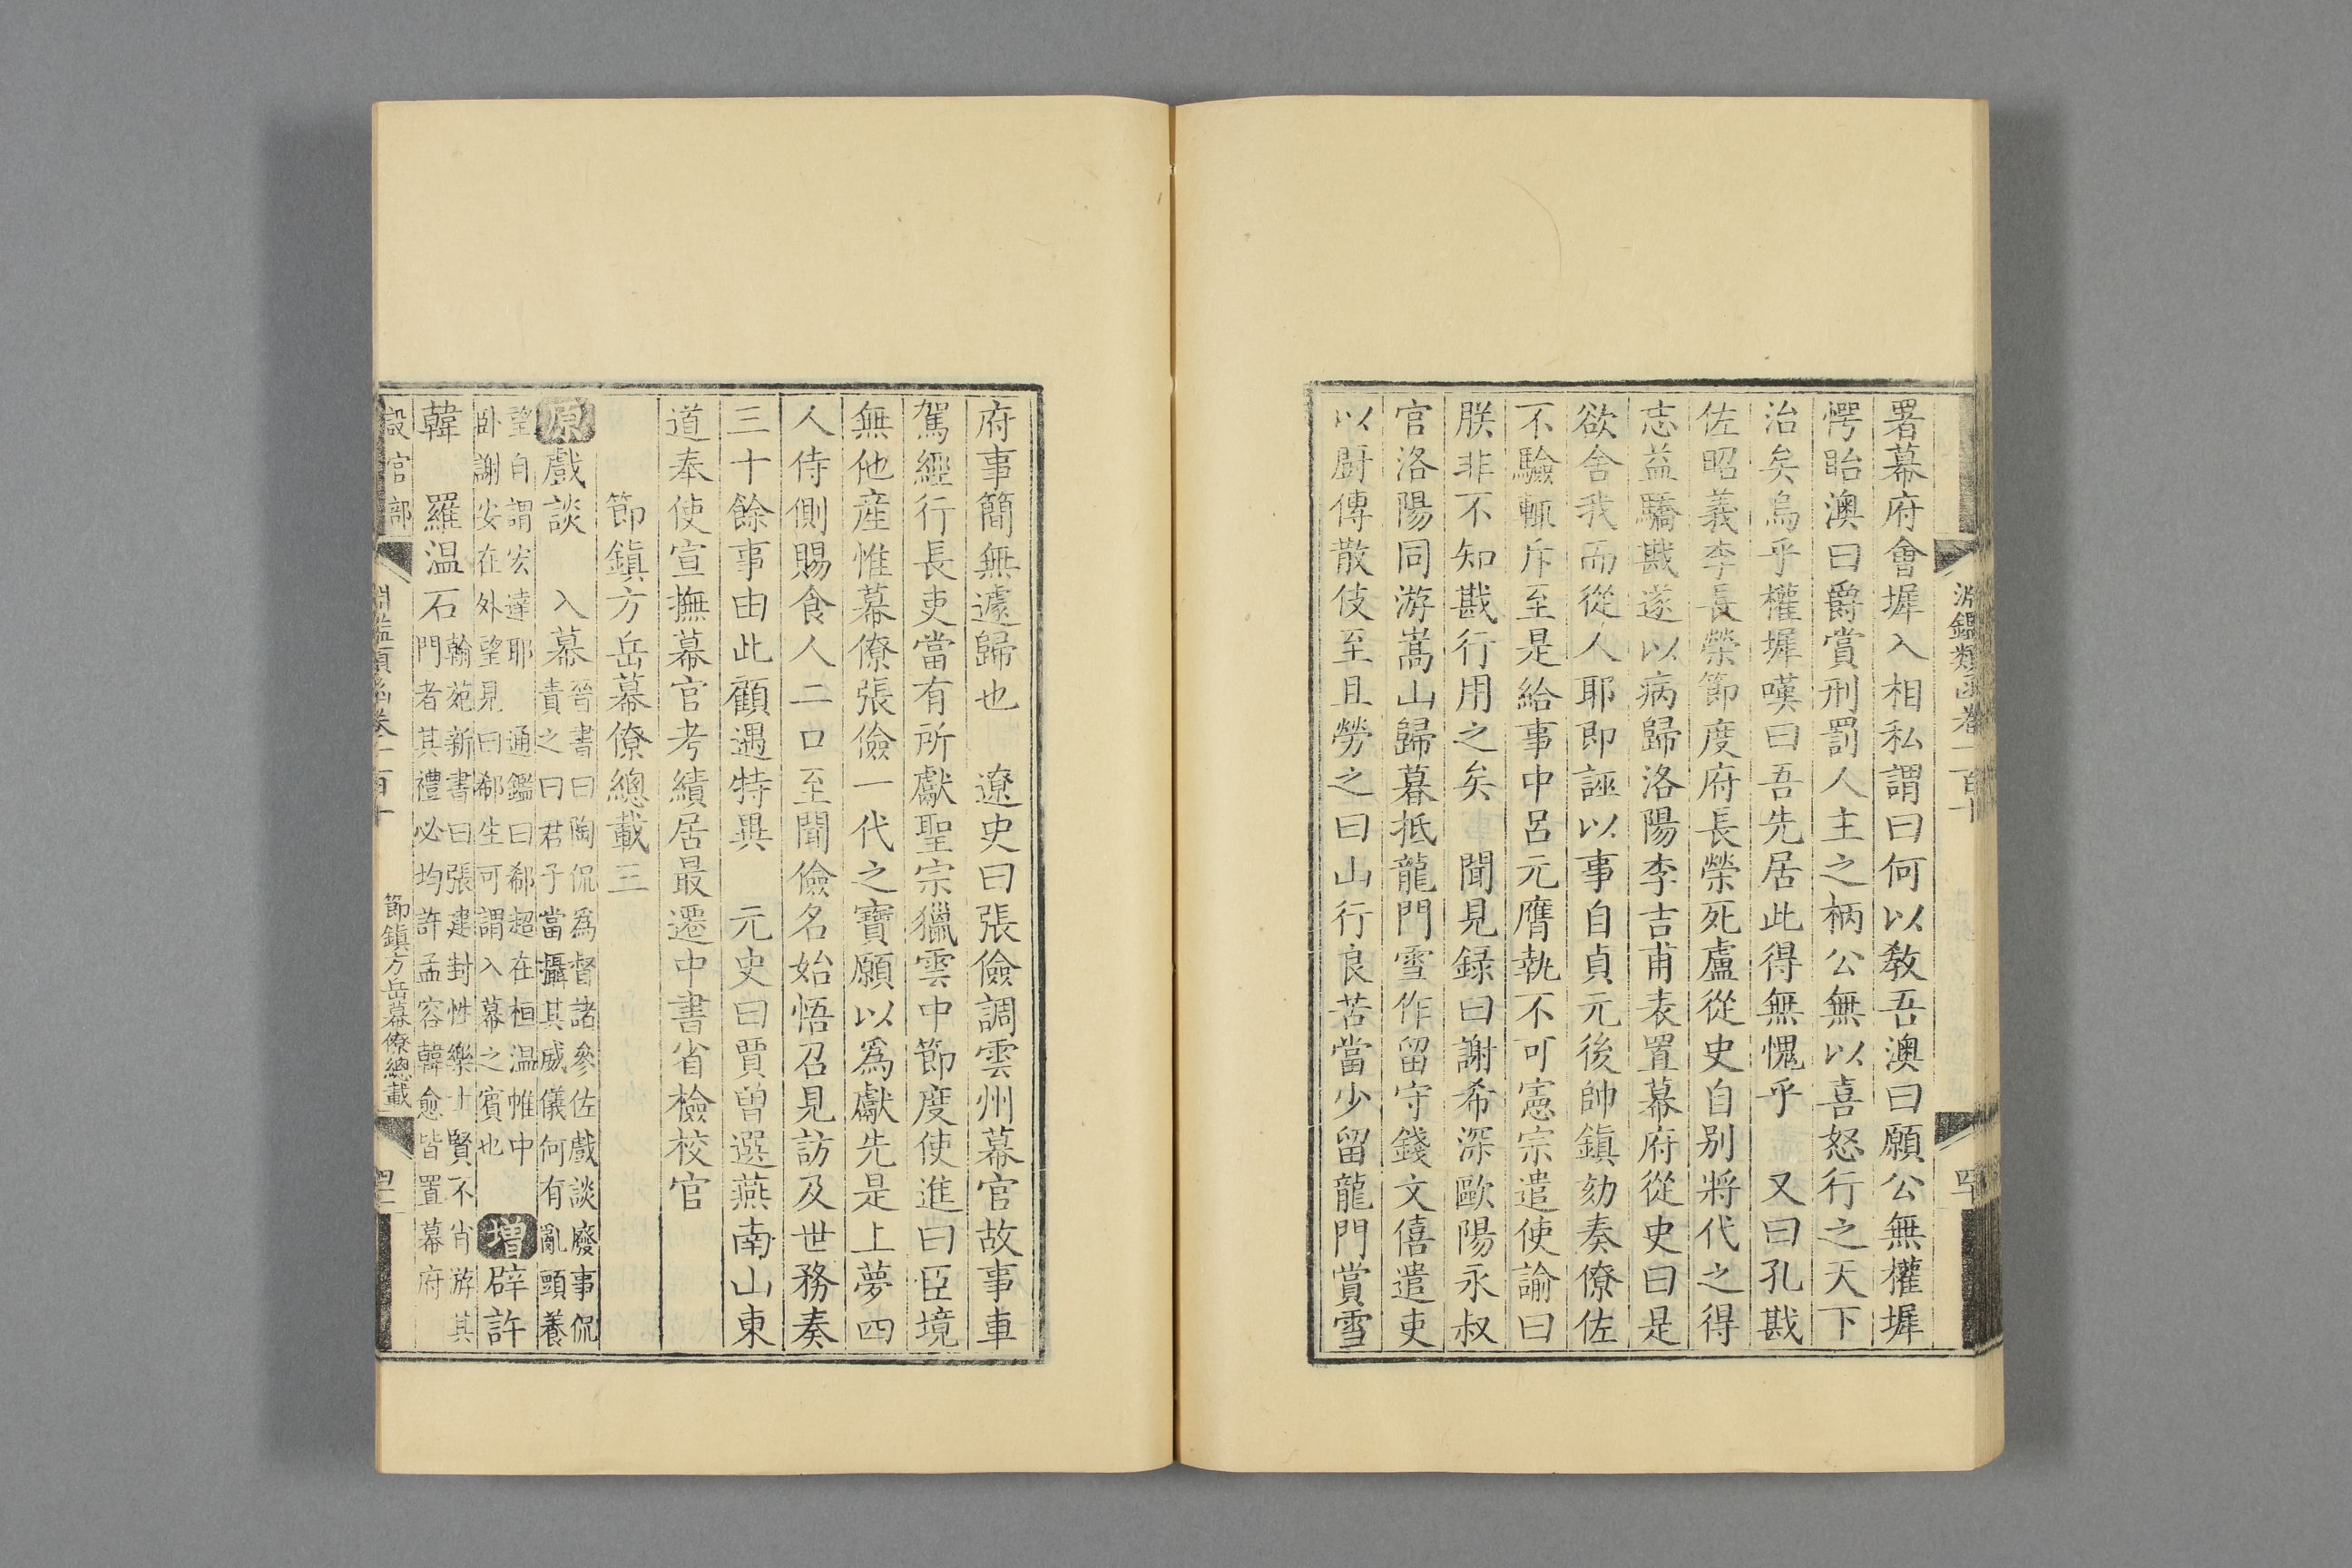 淵鑑類函卷一百十
署幕府會墀入相私謂曰何以敎吾澳曰願公無權墀
愕眙澳曰爵賞刑罰人主之柄公無以喜怒行之天下
治矣烏乎權墀嘆曰吾先居此得無愧乎　又曰孔戡
佐昭義李長榮節度府長榮死盧從史自别將代之得
志益驕戡遂以病歸洛陽李吉甫表置幕府從史曰是
欲舍我而從人耶即誣以事自貞元後帥鎮劾奏僚佐
不驗輒斥至是給事中呂元膺執不可憲宗遣使諭曰
朕非不知戡行用之矣　聞見録曰謝希深歐陽永叔
官洛陽同游嵩山歸暮抵龍門雪作留守錢文僖遣吏
以厨傳散伎至且勞之曰山行良苦當少留龍門賞雪
府事簡無遽歸也　遼史曰張儉調雲州幕官故事車
駕經行長吏當有所獻聖宗獵雲中節度使進曰臣境
無他産惟幕僚張儉一代之寶願以爲獻先是上夢四
人侍側賜食人二口至聞儉名始悟召見訪及世務奏
三十餘事由此顧遇特異　元史曰賈曾選燕南山東
道奉使宣撫幕官考績居最遷中書省檢校官
節鎮方岳幕僚總載三
原戲談　入幕晉書曰陶侃爲督諸參佐戲談廢事侃
責之曰君子當攝其威儀何有亂頭養
望自謂宏達耶　通鑑曰郗超在桓温帷中
卧謝安在外望見曰郗生可謂入幕之賓也　增辟許
韓　羅温石翰苑新書曰張建封性樂士賢不肖游其
門者其禮必均許孟容韓愈皆置幕府
設官部　淵鑑類函卷一百十　節鎮方岳幕僚總載